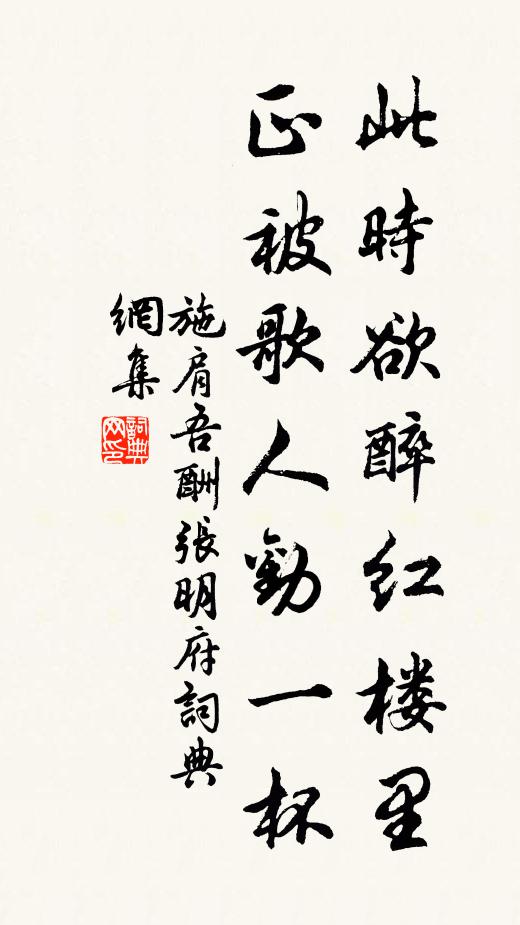 此時欲醉红楼里
正被歌人勸一杯
施肩吾酬張明府詞典
網集
詞典
网印